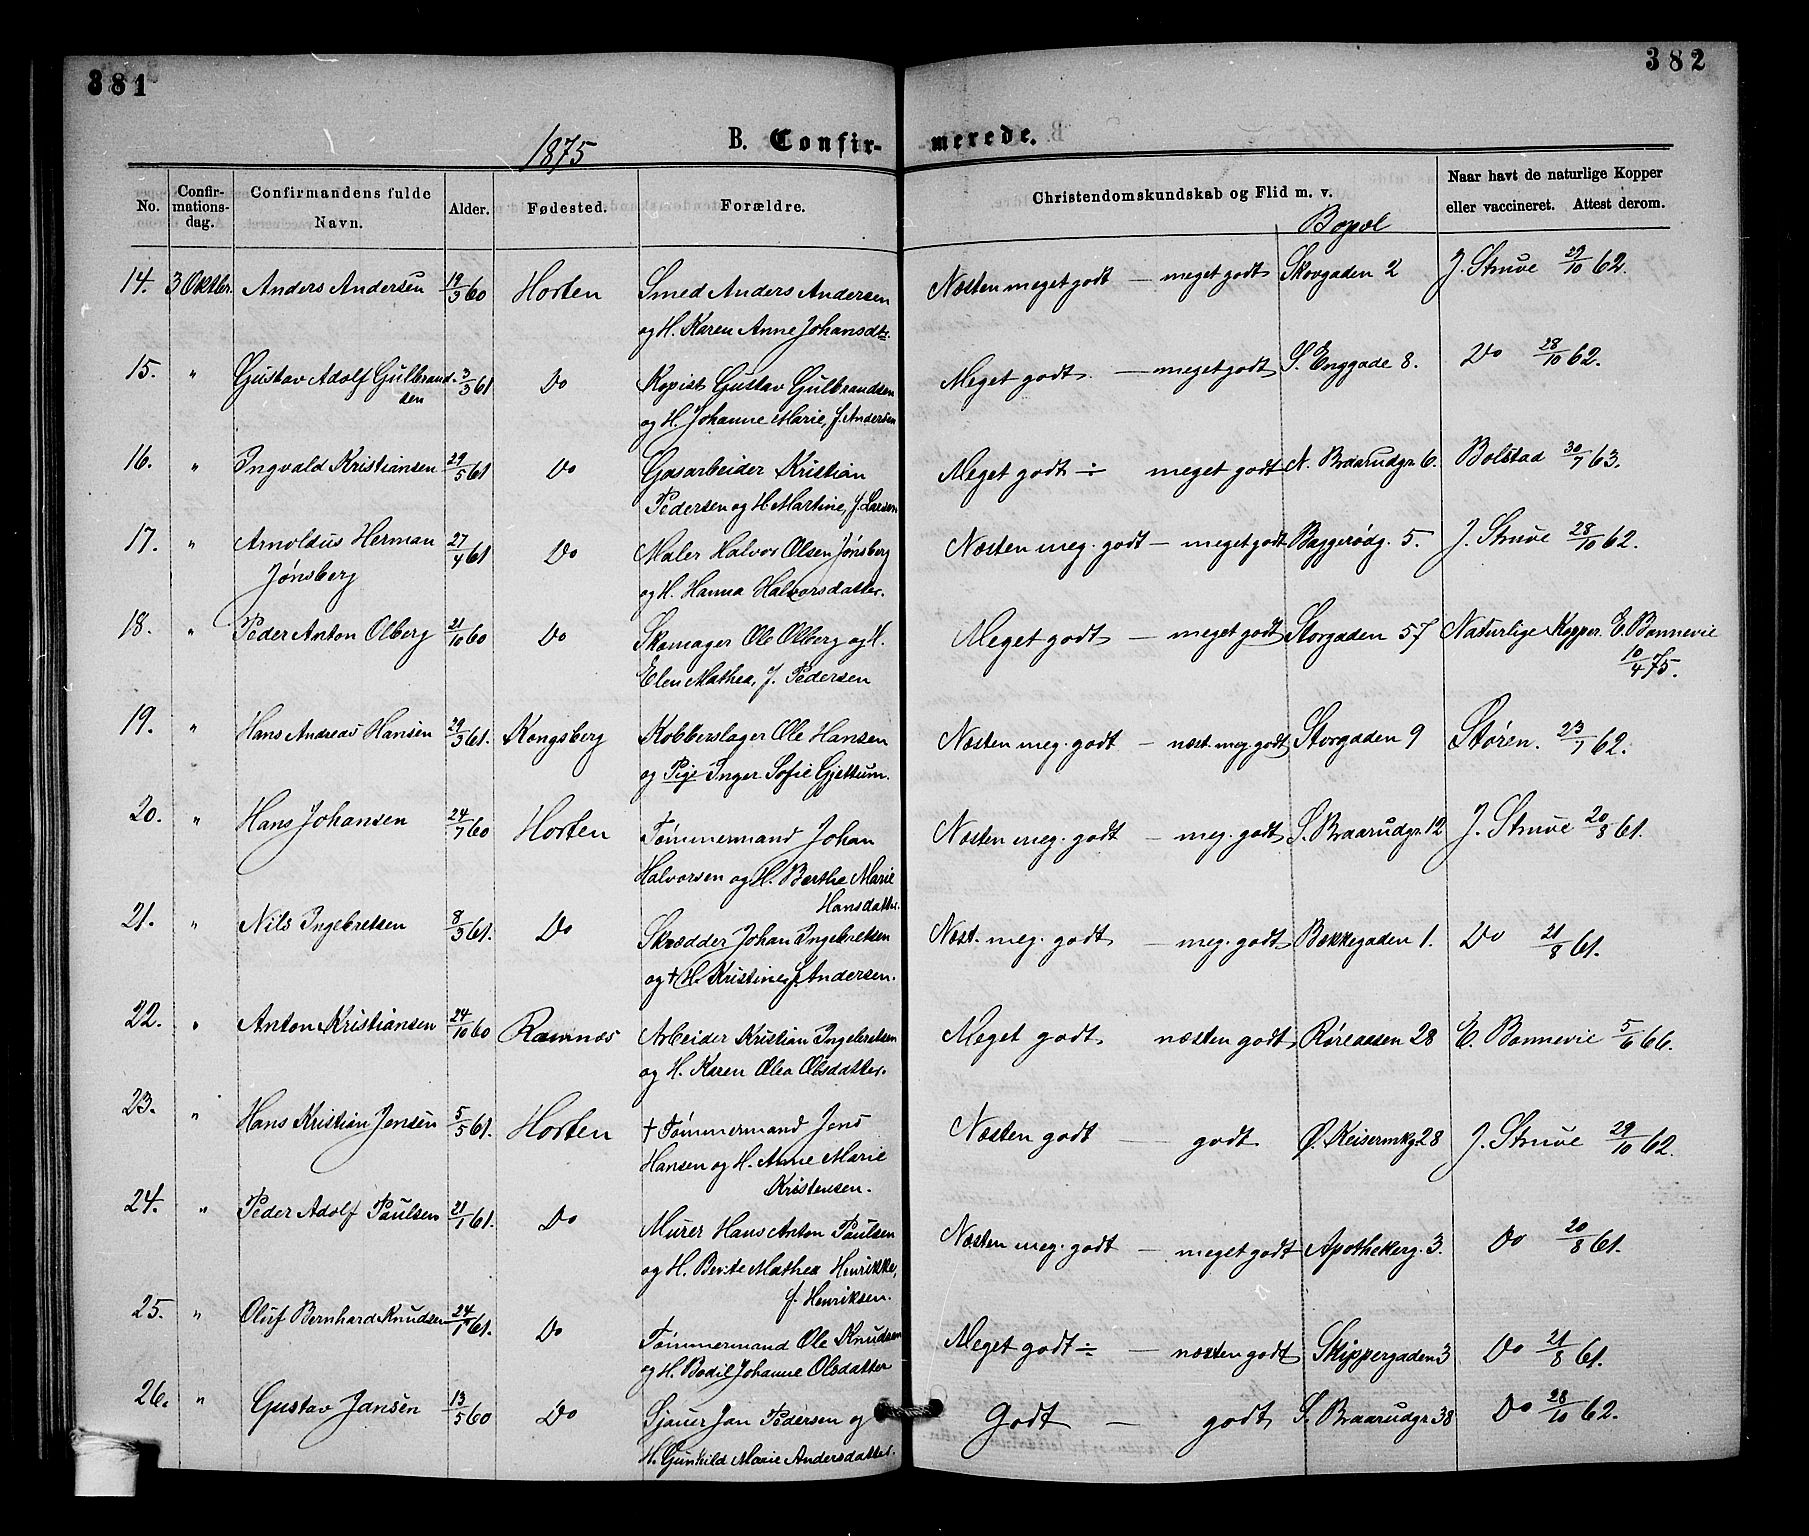 381
382
1875
B. Confir-
merede.
No.
Confir-
mations-
dag.
Confirmandens fulde
Navn.
Alder.
Fødested.
Forældre.
Christendomskundskab og Flid m. v.
Bopæl
Naar havt de naturlige Kopper
eller vaccineret. Attest derom.
14. 3 Oktbr. Anders Andersen 19/3 60 Horten Smed Anders Andersen Næsten meget godt — meget godt Skovgaden 2 J. Struve 29/10 62.
og H. Karen Anne Johansdtr.
15. " Gustav Adolf Gulbrand- 3/3 61 Do Kopist Gustav Gulbrandsen Meget godt. — meget godt S. Enggade 8. Do 28/10 62.
sen og H. Johanne Marie, f. Andersen
16. " Ingvald Kristiansen 29/5 61 Do Gasarbeider Kristian Meget godt ÷ meget godt N. Braarudgr. 6. Bolstad 30/7 63.
Pedersen og H. Martine, f. Larsen
17. " Arnoldus Herman 27/4 61 Do Maler Halvor Olsen Jønsberg Næsten meg. godt — meget godt Baggerødg. 5. J. Struve 28/10 62.
Jønsberg og H. Hanna Halvorsdatter.
18. " Peder Anton Olberg 21/10 60 Do Skomager Ole Olberg og H. Meget godt — meget godt Storgaden 57 Naturlige Kopper. E. Bonnevie
Elen Mathea, f. Pedersen 10/4 75.
19. " Hans Andreas Hansen 29/3 61. Kongsberg Kobberslager Ole Hansen Næsten meg. godt — næst. meg. godt Storgaden 9 Støren. 23/7 62.
og Pige Inger Sofie Gjettum.
20. " Hans Johansen 24/7 60 Horten Tømmermand Johan Næsten meg. godt — meg. godt S. Braarudgr. 12 J. Struve 20/8 61.
Halvorsen og H. Berthe Marie
Hansdatter.
21. " Nils Ingebretsen 8/3 61. Do Skrædder Johan Ingebretsen Næst. meg. godt — meg. godt Bækkegaden 1. Do 21/8 61.
og + H. Kristine, f. Andersen.
22. " Anton Kristiansen 24/10 60 Ramnæs Arbeider Kristian Ingebretsen Meget godt. næsten godt Røreaasen 28 E. Bonnevie 5/6 66.
og H. Karen Olea Olsdatter.
23. " Hans Kristian Jensen 5/5 61. Horten + Tømmermand Jens Næsten godt — godt Ø. Keisermkg. 28 J. Struve 29/10 62.
Hansen og H. Anne Marie
Kristensen.
24. " Peder Adolf Paulsen 21/1 61. Do Murer Hans Anton Paulsen Næsten meg. godt — meget godt Apothekerg. 3. Do 20/8 61.
og H. Berte Mathea Henrikke,
f. Henriksen.
25. " Oluf Bernhard Knudsen 24/1 61. Do Tømmermand Ole Knudsen Meget godt ÷ — næsten godt Skippergaden 3 Do 21/8 61.
og H. Bodil Johanne Olsdatter
26. " Gustav Jansen 13/5 60 Do Sjauer Jan Pedersen og Godt — godt S. Braarudgr. 38 Do 28/10 62.
H. Gunhild Marie Andersdatter.